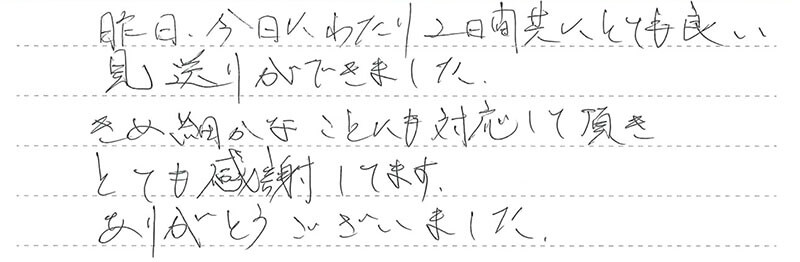 昨日、今日にわたり2日間共にとても良い
見送りができました。
きめ細かなことにも対応して頂き
とても感謝してます。
ありがとうございました。